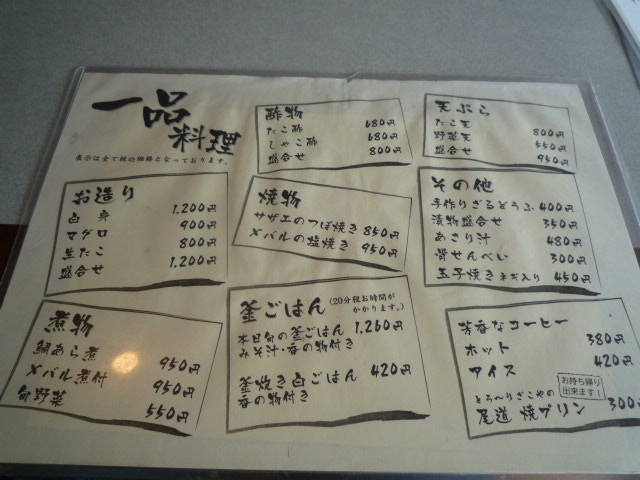 一品
料理
表示は全て税込価格となっております。
お造り
白身 1,200円
マグロ 900円
生たこ 800円
盛合せ 1,200円
煮物
鯛あら煮 950円
メバル煮付 950円
旬野菜 550円
酢物
たこ酢 680円
しゃこ酢 680円
盛合せ 800円
焼物
サザエのつぼ焼き 850円
メバルの塩焼き 950円
釜ごはん (20分程お時間がかかります。)
本日旬の釜ごはん 1,260円
みそ汁・香の物付き
釜炊き白ごはん 420円
香の物付き
天ぷら
たこ天 800円
野菜天 550円
盛合せ 950円
その他
手作りざるどうふ 400円
漬物盛合せ 350円
あさり汁 480円
骨せんべい 300円
玉子焼き ネギ入り 450円
芳香なコーヒー
ホット 380円
アイス 420円
お持ち帰り
出来ます!
とろ〜りざこやの
尾道 焼プリン 300